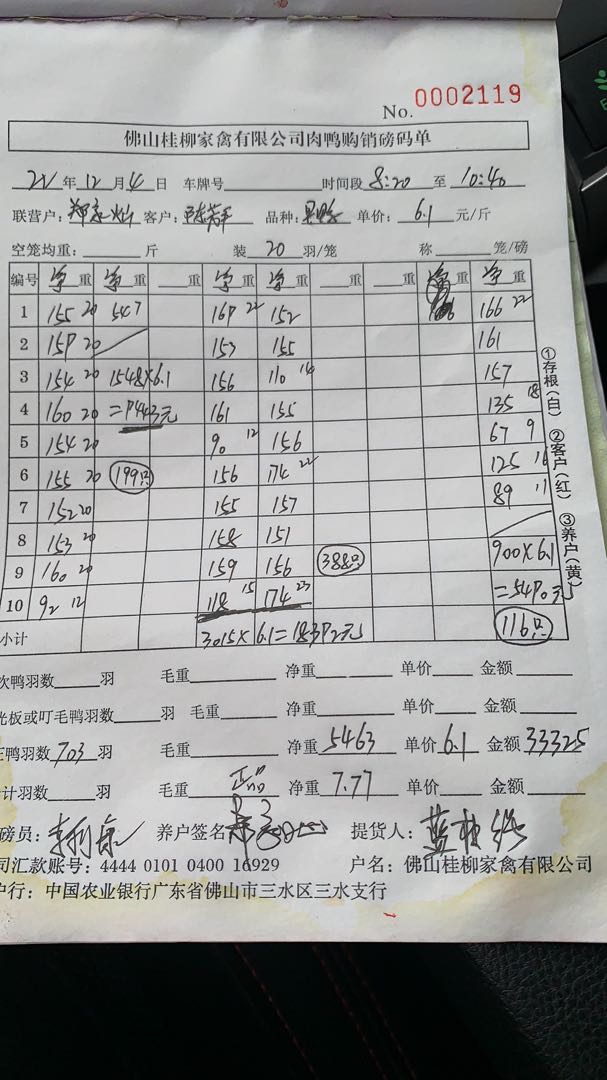 No. 0002119
佛山桂柳家禽有限公司肉鸭购销磅码单
21年12月4日 车牌号 时间段8:20至10:40
联营户: 客户: 品种: 单价:6.1元/斤
空笼均重: 斤 装20羽/笼 称 笼/磅
编号 净重 净重 重 净重 净重 重 重 重 净重
1 155 20 547 167 22 152 166 22
2 157 20 153 155 161
3 154 20 1548×6.1 156 110 14 157
4 160 20 =9443元 161 155 135 18
5 154 20 90 12 156 67 9
6 155 20 199只 156 174 22 125 16
7 152 20 155 157 89 11
8 153 20 158 151
9 160 20 159 156 388只 900×6.1
10 92 12 118 15 174 23 =5490元
小计 3015×6.1=18392元 116只
次鸭羽数 羽 毛重 净重 单价 金额
光板或叮毛鸭羽数 羽 毛重 净重 单价 金额
正鸭羽数703羽 毛重 净重5463 单价6.1 金额33325
合计羽数 羽 毛重 正品 净重7.77 单价 金额
磅员: 养户签名 提货人:
司汇款账号:4444 0101 0400 16929 户名:佛山桂柳家禽有限公司
户行:中国农业银行广东省佛山市三水区三水支行
①存根(白) ②客户(红) ③养户(黄)